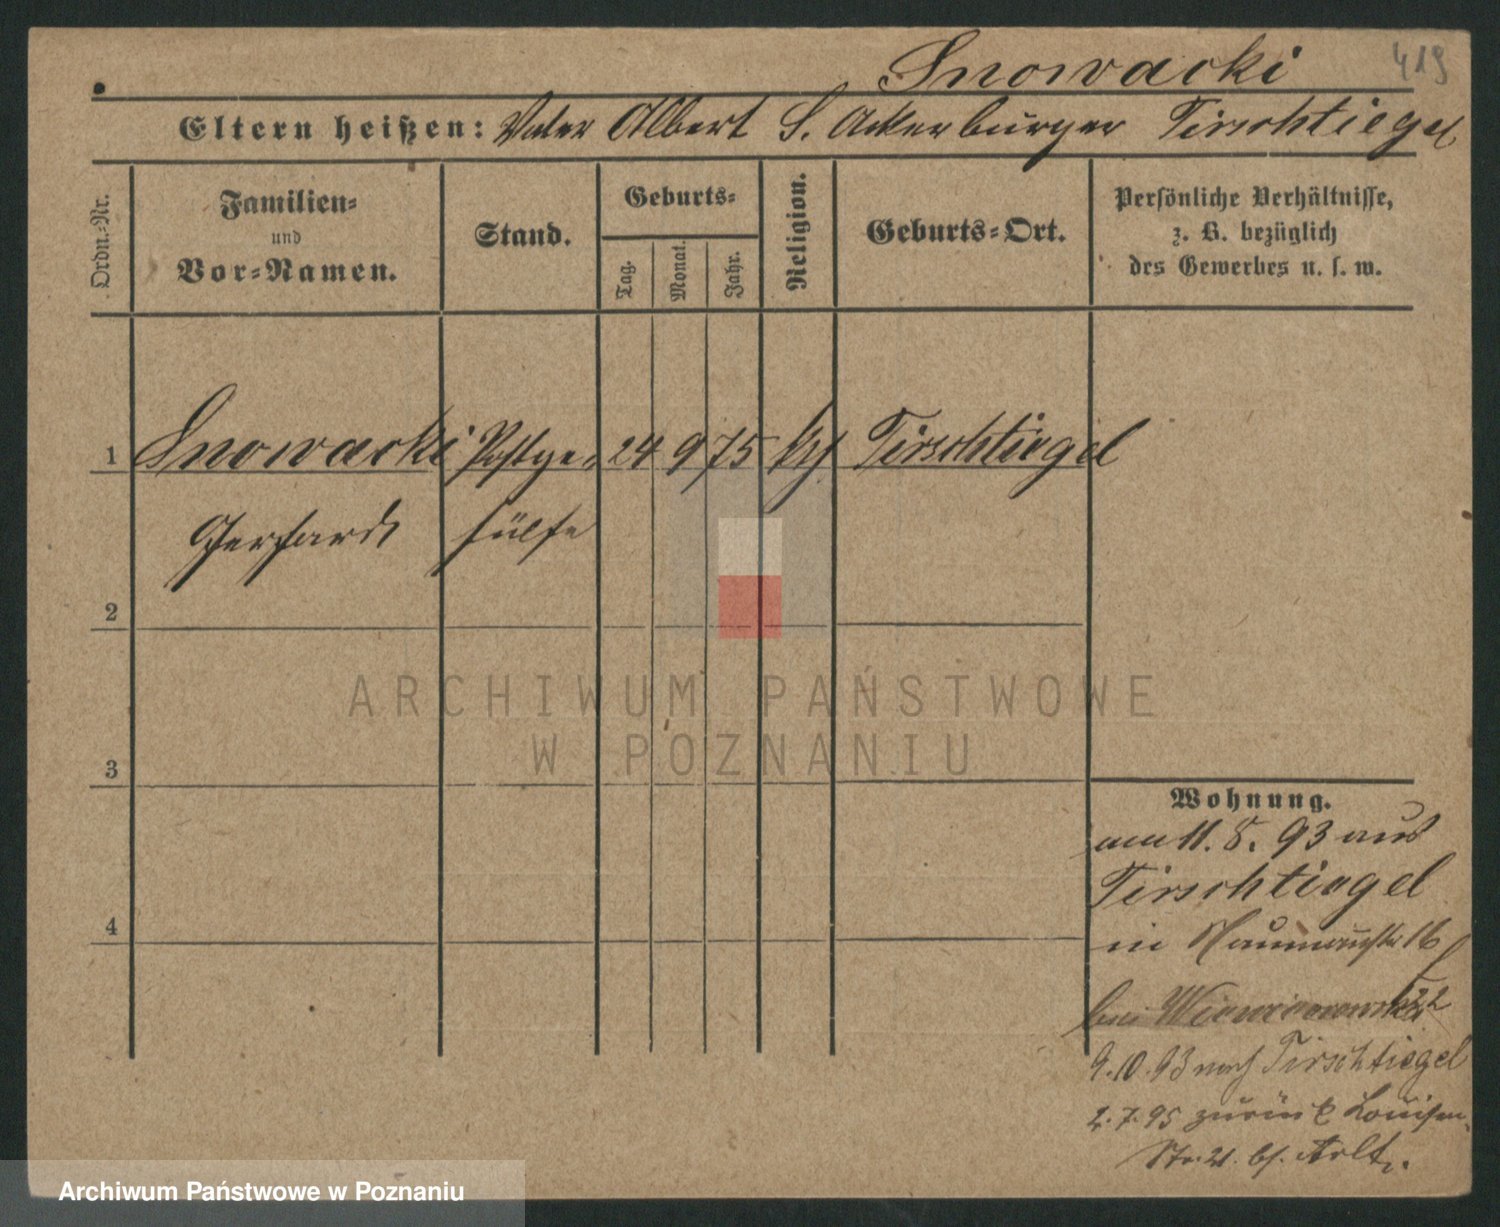 Snowacki 419
Eltern heißen: Vater Albert S. Ackerbürger Tirschtiegel
Ordn.-Nr.
Familien-
und
Vor-Namen.
Stand.
Geburts-
Tag.
Monat.
Jahr.
Religion.
Geburts-Ort.
Persönliche Verhältnisse,
z. B. bezüglich
des Gewerbes u. s. w.
1 Snowacki Postge- 24 9 75 Tirschtiegel
Gerhard hülfe
2
3
4
ARCHIWUM PAŃSTWOWE
W POZNANIU
Wohnung.
am 11. 8. 93 aus
Tirschtiegel
in Naumannstr 16
bei
9.10.93 nach Tirschtiegel
2.7.95 zurück Louisen-
Str. 21. bh. Arlt.
Archiwum Państwowe w Poznaniu